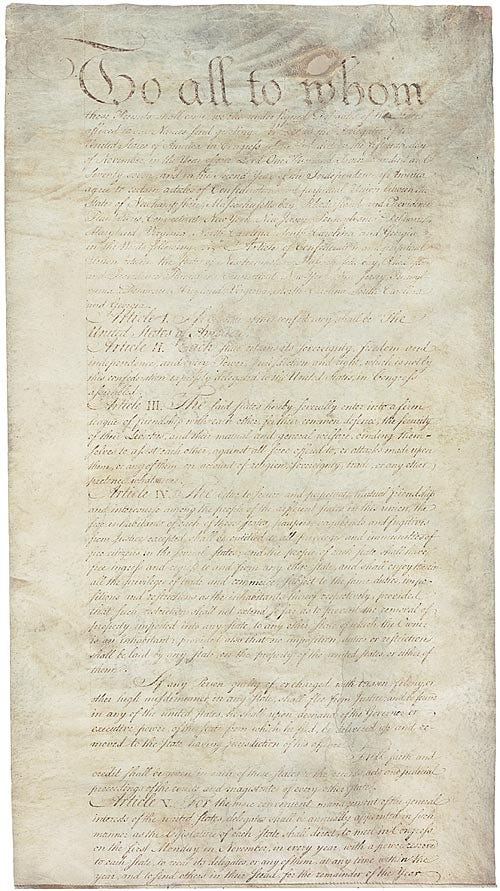 To all to whom
these Presents shall come, we the under signed Delegates of the States
affixed to our Names send greeting. Whereas the Delegates of the
United States of America in Congress assembled did on the fifteenth day
of November in the Year of our Lord One Thousand Seven Hundred and
Seventy seven, and in the Second Year of the Independence of America
agree to certain articles of Confederation and perpetual Union between the
States of Newhampshire, Massachusetts-bay, Rhodeisland and Providence
Plantations, Connecticut, New York, New Jersey, Pennsylvania, Delaware,
Maryland, Virginia, North-Carolina, South-Carolina, and Georgia
in the Words following, viz. Articles of Confederation and perpetual
Union between the States of Newhampshire, Massachusetts-bay, Rhodeisland
and Providence Plantations, Connecticut, New-York, New-Jersey, Pennsyl-
vania, Delaware, Maryland, Virginia, North-Carolina, South-Carolina
and Georgia.
Article I. The Stile of this confederacy shall be "The
United States of America."
Article II. Each state retains its sovereignty, freedom and
independence, and every Power, Jurisdiction and right, which is not by
this confederation expressly delegated to the United States, in Congress
assembled.
Article III. The said states hereby severally enter into a firm
league of friendship with each other, for their common defence, the security
of their Liberties, and their mutual and general welfare, binding them-
selves to assist each other, against all force offered to, or attacks made upon
them, or any of them, on account of religion, sovereignty, trade, or any other
pretence whatever.
Article IV. The better to secure and perpetuate mutual friendship
and intercourse among the people of the different states in this union, the
free inhabitants of each of these states, paupers, vagabonds and fugitives
from Justice excepted, shall be entitled to all privileges and immunities of
free citizens in the several states; and the people of each state shall have
free ingress and regress to and from any other state, and shall enjoy therein
all the privileges of trade and commerce, subject to the same duties, impo-
sitions and restrictions as the inhabitants thereof respectively, provided
that such restriction shall not extend so far as to prevent the removal of
property imported into any state, to any other state of which the Owner
is an inhabitant; provided also that no imposition, duties or restriction
shall be laid by any state, on the property of the united states, or either of
them.
If any Person guilty of, or charged with treason, felony, or
other high misdemeanor in any state, shall flee from Justice, and be found
in any of the united states, he shall upon demand of the Governor or
executive power, of the state from which he fled, be delivered up and re-
moved to the state having jurisdiction of his offence.
Full faith and
credit shall be given in each of these states to the records, acts and judicial
proceedings of the courts and magistrates of every other state.
Article V. For the more convenient management of the general
interests of the united states, delegates shall be annually appointed in such
manner as the legislature of each state shall direct, to meet in Congress
on the first Monday in November, in every year, with a power reserved
to each state, to recal its delegates, or any of them, at any time within the
year, and to send others in their stead, for the remainder of the Year.